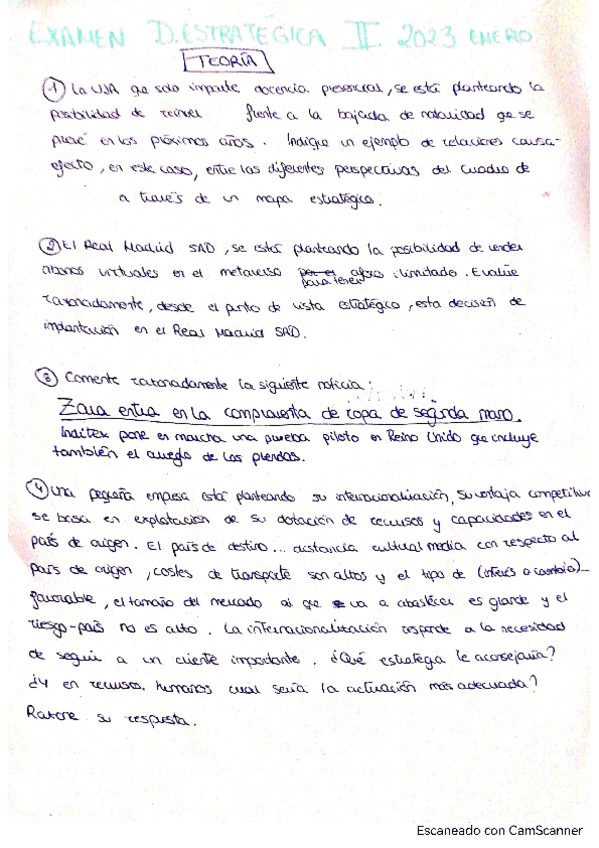 EXAMEN D. ESTRATEGICA II. 2023 ENERO
TEORÍA
① La UJA que solo imparte docencia presencial, se está planteando la
posibilidad de frente a la bajada de natalidad que se
prevé en los próximos años. Indique un ejemplo de relaciones causa-
efecto, en este caso, entre las diferentes perspectivas del Cuadro de
a través de un mapa estratégico.
② El Real Madrid SAD, se está planteando la posibilidad de vender
abonos virtuales en el metaverso para tener aforo ilimitado. Evalúe
razonadamente, desde el punto de vista estratégico, esta decisión de
implantación en el Real Madrid SAD.
③ Comente razonadamente la siguiente noticia:
Zara entra en la compraventa de ropa de segunda mano.
Inditex pone en marcha una prueba piloto en Reino Unido que incluye
también el arreglo de las prendas.
④ Una pequeña empresa está planteando su internacionalización, su ventaja competitiva
se basa en explotación de su dotación de recursos y capacidades en el
país de origen. El país de destino... distancia cultural media con respecto al
país de origen, costes de transporte son altos y el tipo de (interés o cambio)
favorable, el tamaño del mercado al que va a abastecer es grande y el
riesgo-país no es alto. La internacionalización responde a la necesidad
de seguir a un cliente importante. ¿Qué estratega le aconsejaría?
¿Y en recursos humanos cual sería la actuación más adecuada?
Razone su respuesta.
Escaneado con CamScanner